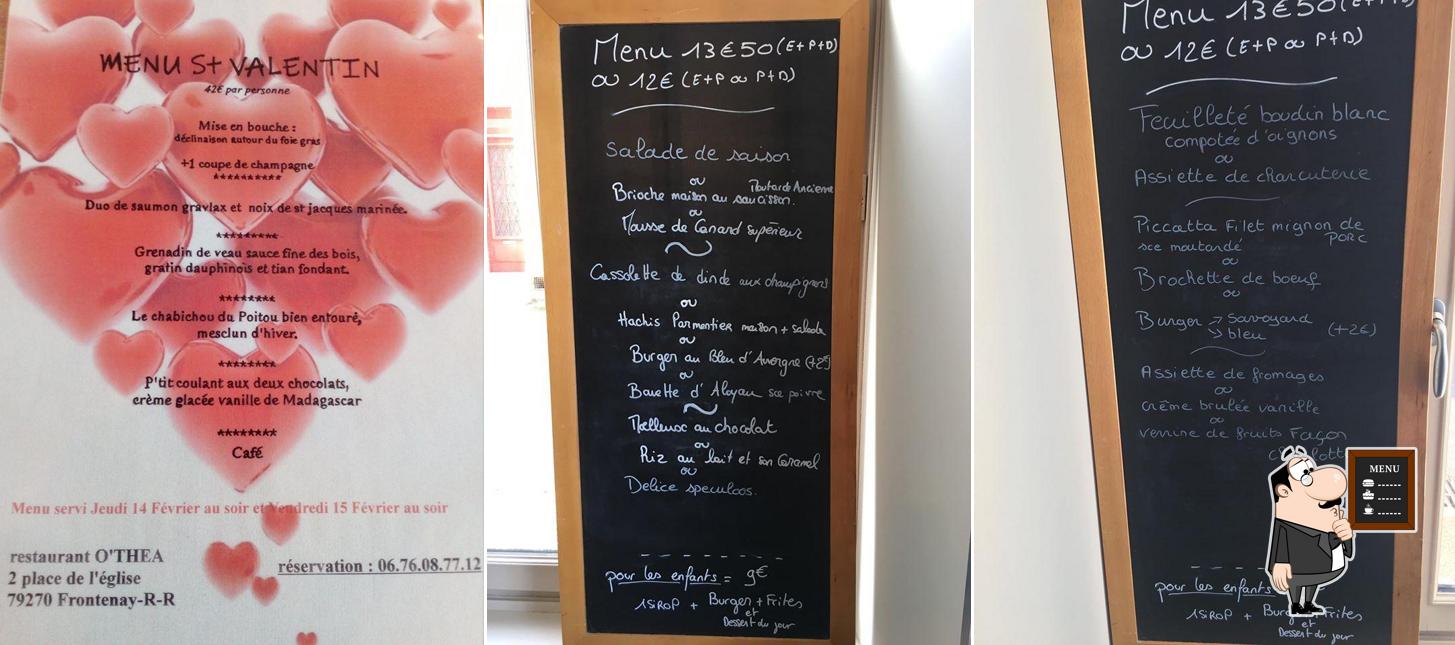 MENU St VALENTIN
42€ par personne
Mise en bouche :
déclinaison autour du foie gras
+1 coupe de champagne
**********
Duo de saumon gravlax et noix de st jacques marinée.
*********
Grenadin de veau sauce fine des bois,
gratin dauphinois et tian fondant.
********
Le chabichou du Poitou bien entouré,
mesclun d'hiver.
********
P'tit coulant aux deux chocolats,
crème glacée vanille de Madagascar
********
Café
Menu servi Jeudi 14 Février au soir et Vendredi 15 Février au soir
restaurant O'THEA
2 place de l'église
79270 Frontenay-R-R
réservation : 06.76.08.77.12
Menu 13€50 (E+P+D)
ou 12€ (E+P ou P+D)
Salade de saison
ou
Brioche maison au saucisson. Moutarde Ancienne
ou
Mousse de Canard supérieur
Cassolette de dinde aux champignons
ou
Hachis Parmentier maison + salade
ou
Burger au Bleu d'Auvergne (+2€)
ou
Bavette d'Aloyau sce poivre
Moelleux au chocolat
ou
Riz au lait et son Caramel
ou
Delice speculoos.
pour les enfants = 9€
1 SIROP + Burger + Frites
et
Dessert du jour
Menu 13€50 (E+P+D)
ou 12€ (E+P ou P+D)
Feuilleté boudin blanc
compotée d'oignons
ou
Assiette de charcuterie
Piccatta Filet mignon de
sce moutarde PORC
ou
Brochette de boeuf
ou
Burger → Savoyard
→ bleu (+2€)
Assiette de fromages
ou
crême brulée vanille
ou
verrine de fruits Façon
pour les enfants
1 SIROP + Burger + Frites
et
Dessert du jour
MENU